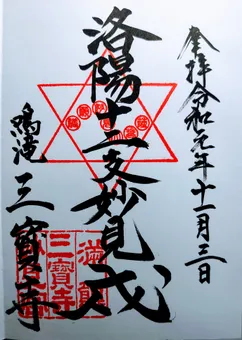 奉拝令和元年十一月三日
洛陽十二支妙見戌
鳴滝
三寳寺
三寳寺